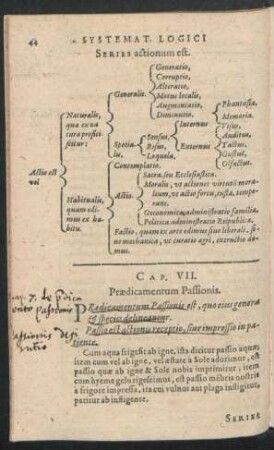 44 SYSTEMAT. LOGICI
SERIES actionum est.
Actio est vel
Naturalis, quæ ex natura proficiscitur:
Generalis.
Generatio,
Corruptio,
Alteratio,
Motus localis,
Augmentatio,
Diminutio.
Specialis
Sensus,
Internus
Phantasia,
Memoria.
Externus
Visus,
Auditus,
Tactus,
Gustus,
Olfactus.
Risus,
Loquela,
Contemplatio.
Habitualis, quam edimus ex habitu.
Actio.
Sacra, seu Ecclesiastica.
Moralis, ut actiones virtutū moralium, ut actio fortis, justa, temperans.
Oeconomica, administratio familiæ.
Politica, administratio Reipublicæ.
Factio, quam ex arte edimus sive liberali, sive mechanica, ut curatio agri, exstructio domus.
CAP. VII.
Prædicamentum Passionis.
PRædicamentum Passionis est, quo ejus genera
& species delineantur.
Passio est actionis receptio, sive impressio in patiente.
Cum aqua frigescit ab igne, ista dicitur passio aquæ:
item cum vel ab igne, vel æstate à Sole adurimur, est
passio quæ ab igne & Sole nobis imprimitur: item
cum hyeme gelu rigescimus, est passio mēbris nostris
à frigore impressa, ita cui vulnus aut plaga infligitur,
patitur ab infligente.
SERIES